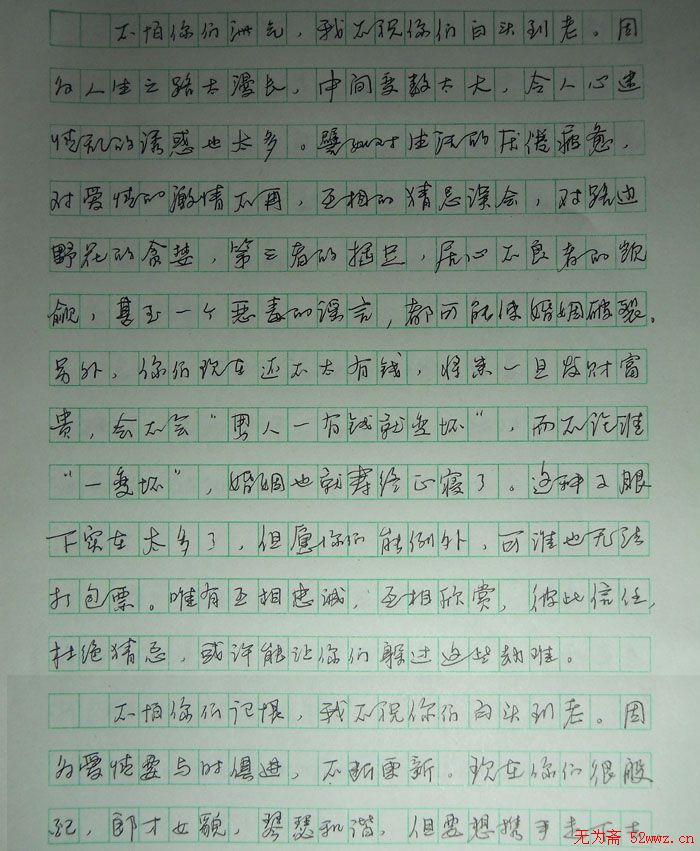 不怕你们泄气，我不祝你们白头到老。因
为人生之路太漫长，中间变数太大，令人心迷
情乱的诱惑也太多。譬如对生活的厌倦疲惫，
对爱情的激情不再，互相的猜忌误会，对路边
野花的贪婪，第三者的插足，居心不良者的觊
觎，甚至一个恶毒的谣言，都可能使婚姻破裂。
另外，你们现在还不太有钱，将来一旦发财富
贵，会不会“男人一有钱就变坏”，而不论谁
“一变坏”，婚姻也就寿终正寝了。这种事眼
下实在太多了，但愿你们能例外，可谁也无法
打包票。唯有互相忠诚，互相欣赏，彼此信任，
杜绝猜忌，或许能让你们躲过这些劫难。
不怕你们记恨，我不祝你们白头到老。因
为爱情要与时俱进，不断更新。现在你们很般
配，郎才女貌，琴瑟和谐，但要想携手走下去
无为斋 52wwz.cn